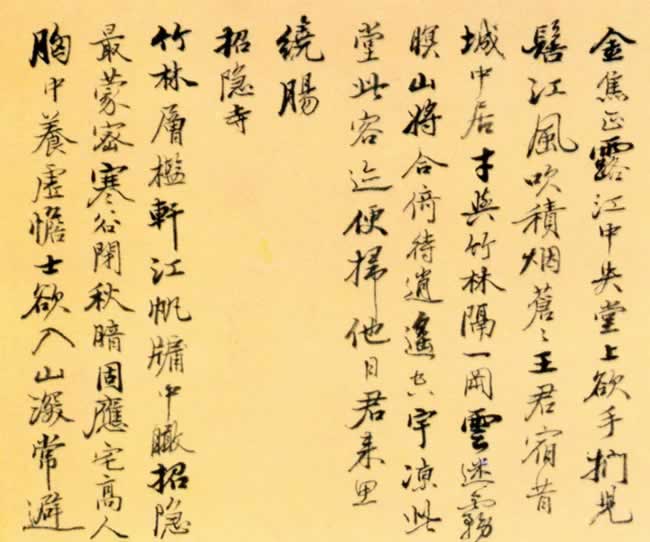 金焦正露江中央堂上欲手捫
髻江風吹積烟蒼〻王君宿昔
城中居才與竹林隔一岡雲迷霧
暝山將合倚待逍遙宇凉此
堂此客迹便掃他日君来
繞腸
招隐寺
竹林層檻軒江帆牖中瞰招隐
最蒙密寒谷閉秋暗固應宅高人
胸中養虚憺士欲入山深常避